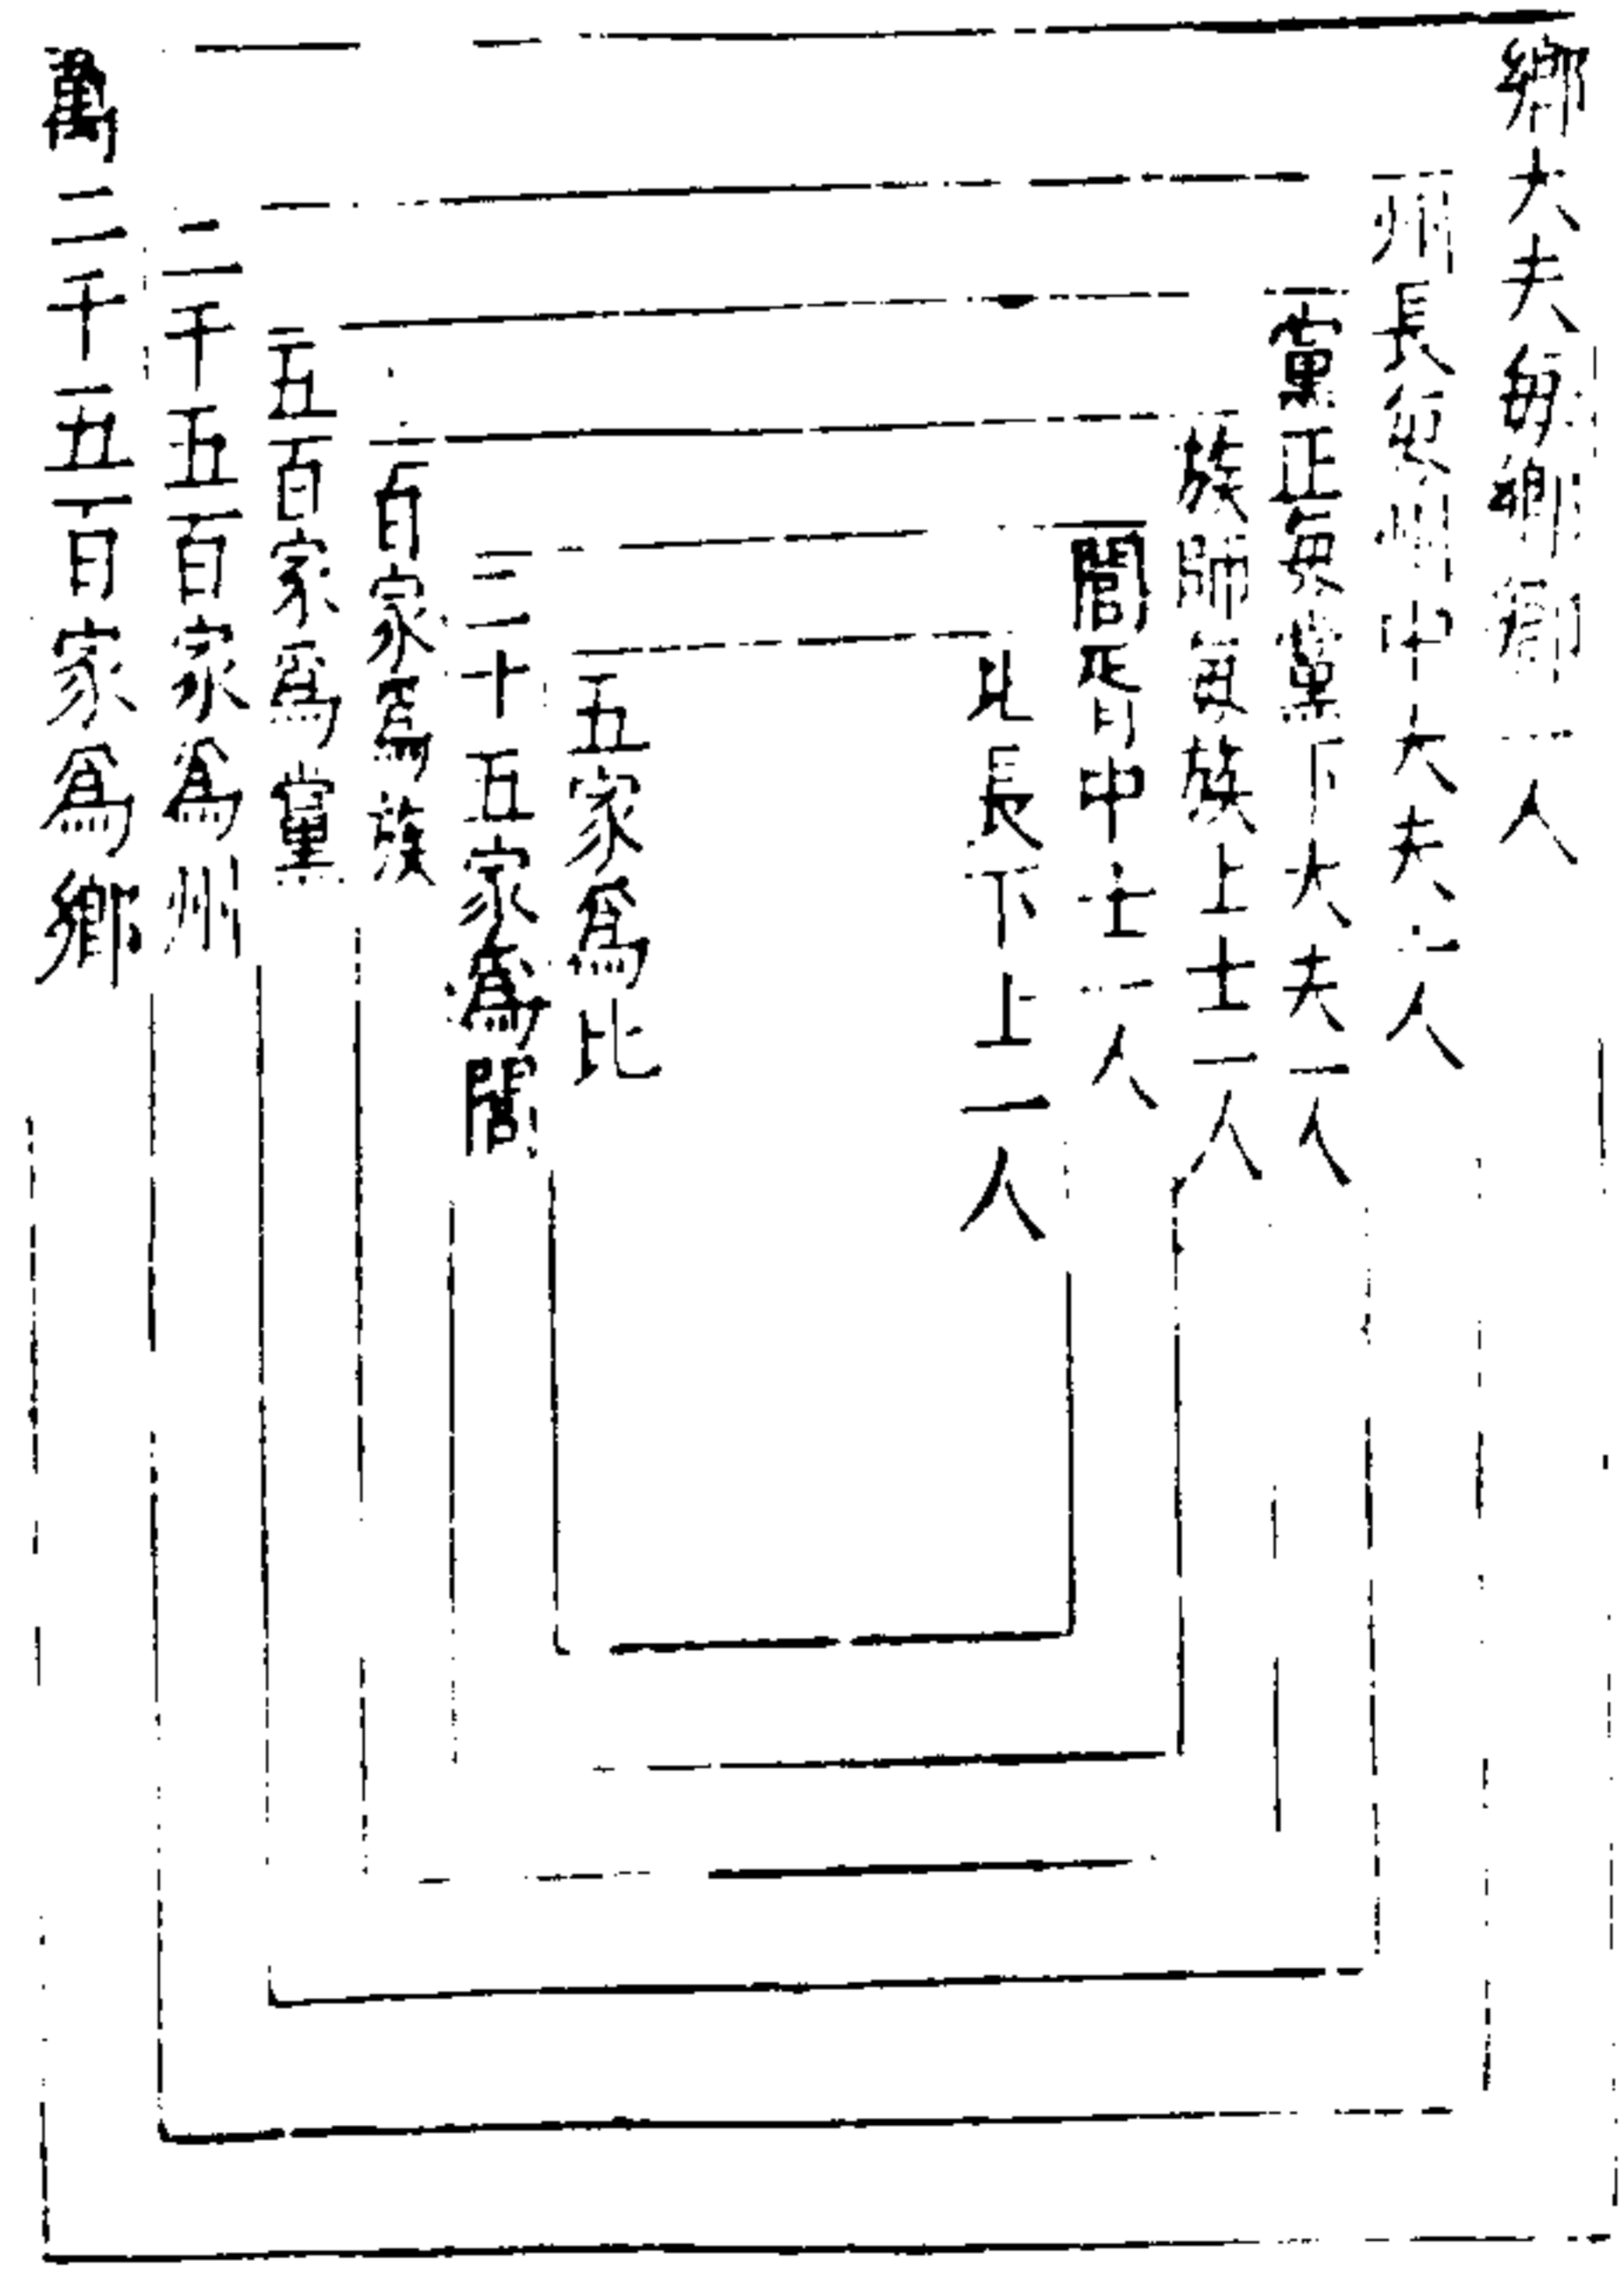 鄉大夫每鄉卿一人
州長每州中大夫一人
黨正每黨下大夫一人
族師每族上士一人
閭胥中士一人
比長下上一人
五家爲比
二十五家爲閭
百家爲族
五百家爲黨
二千五百家爲州
萬二千五百家爲鄉